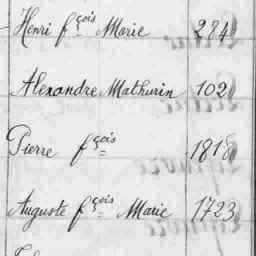 Henri fçois Marie 284
Alexandre Mathurin 102
Pierre fçois 1818
Auguste fçois Marie 1723